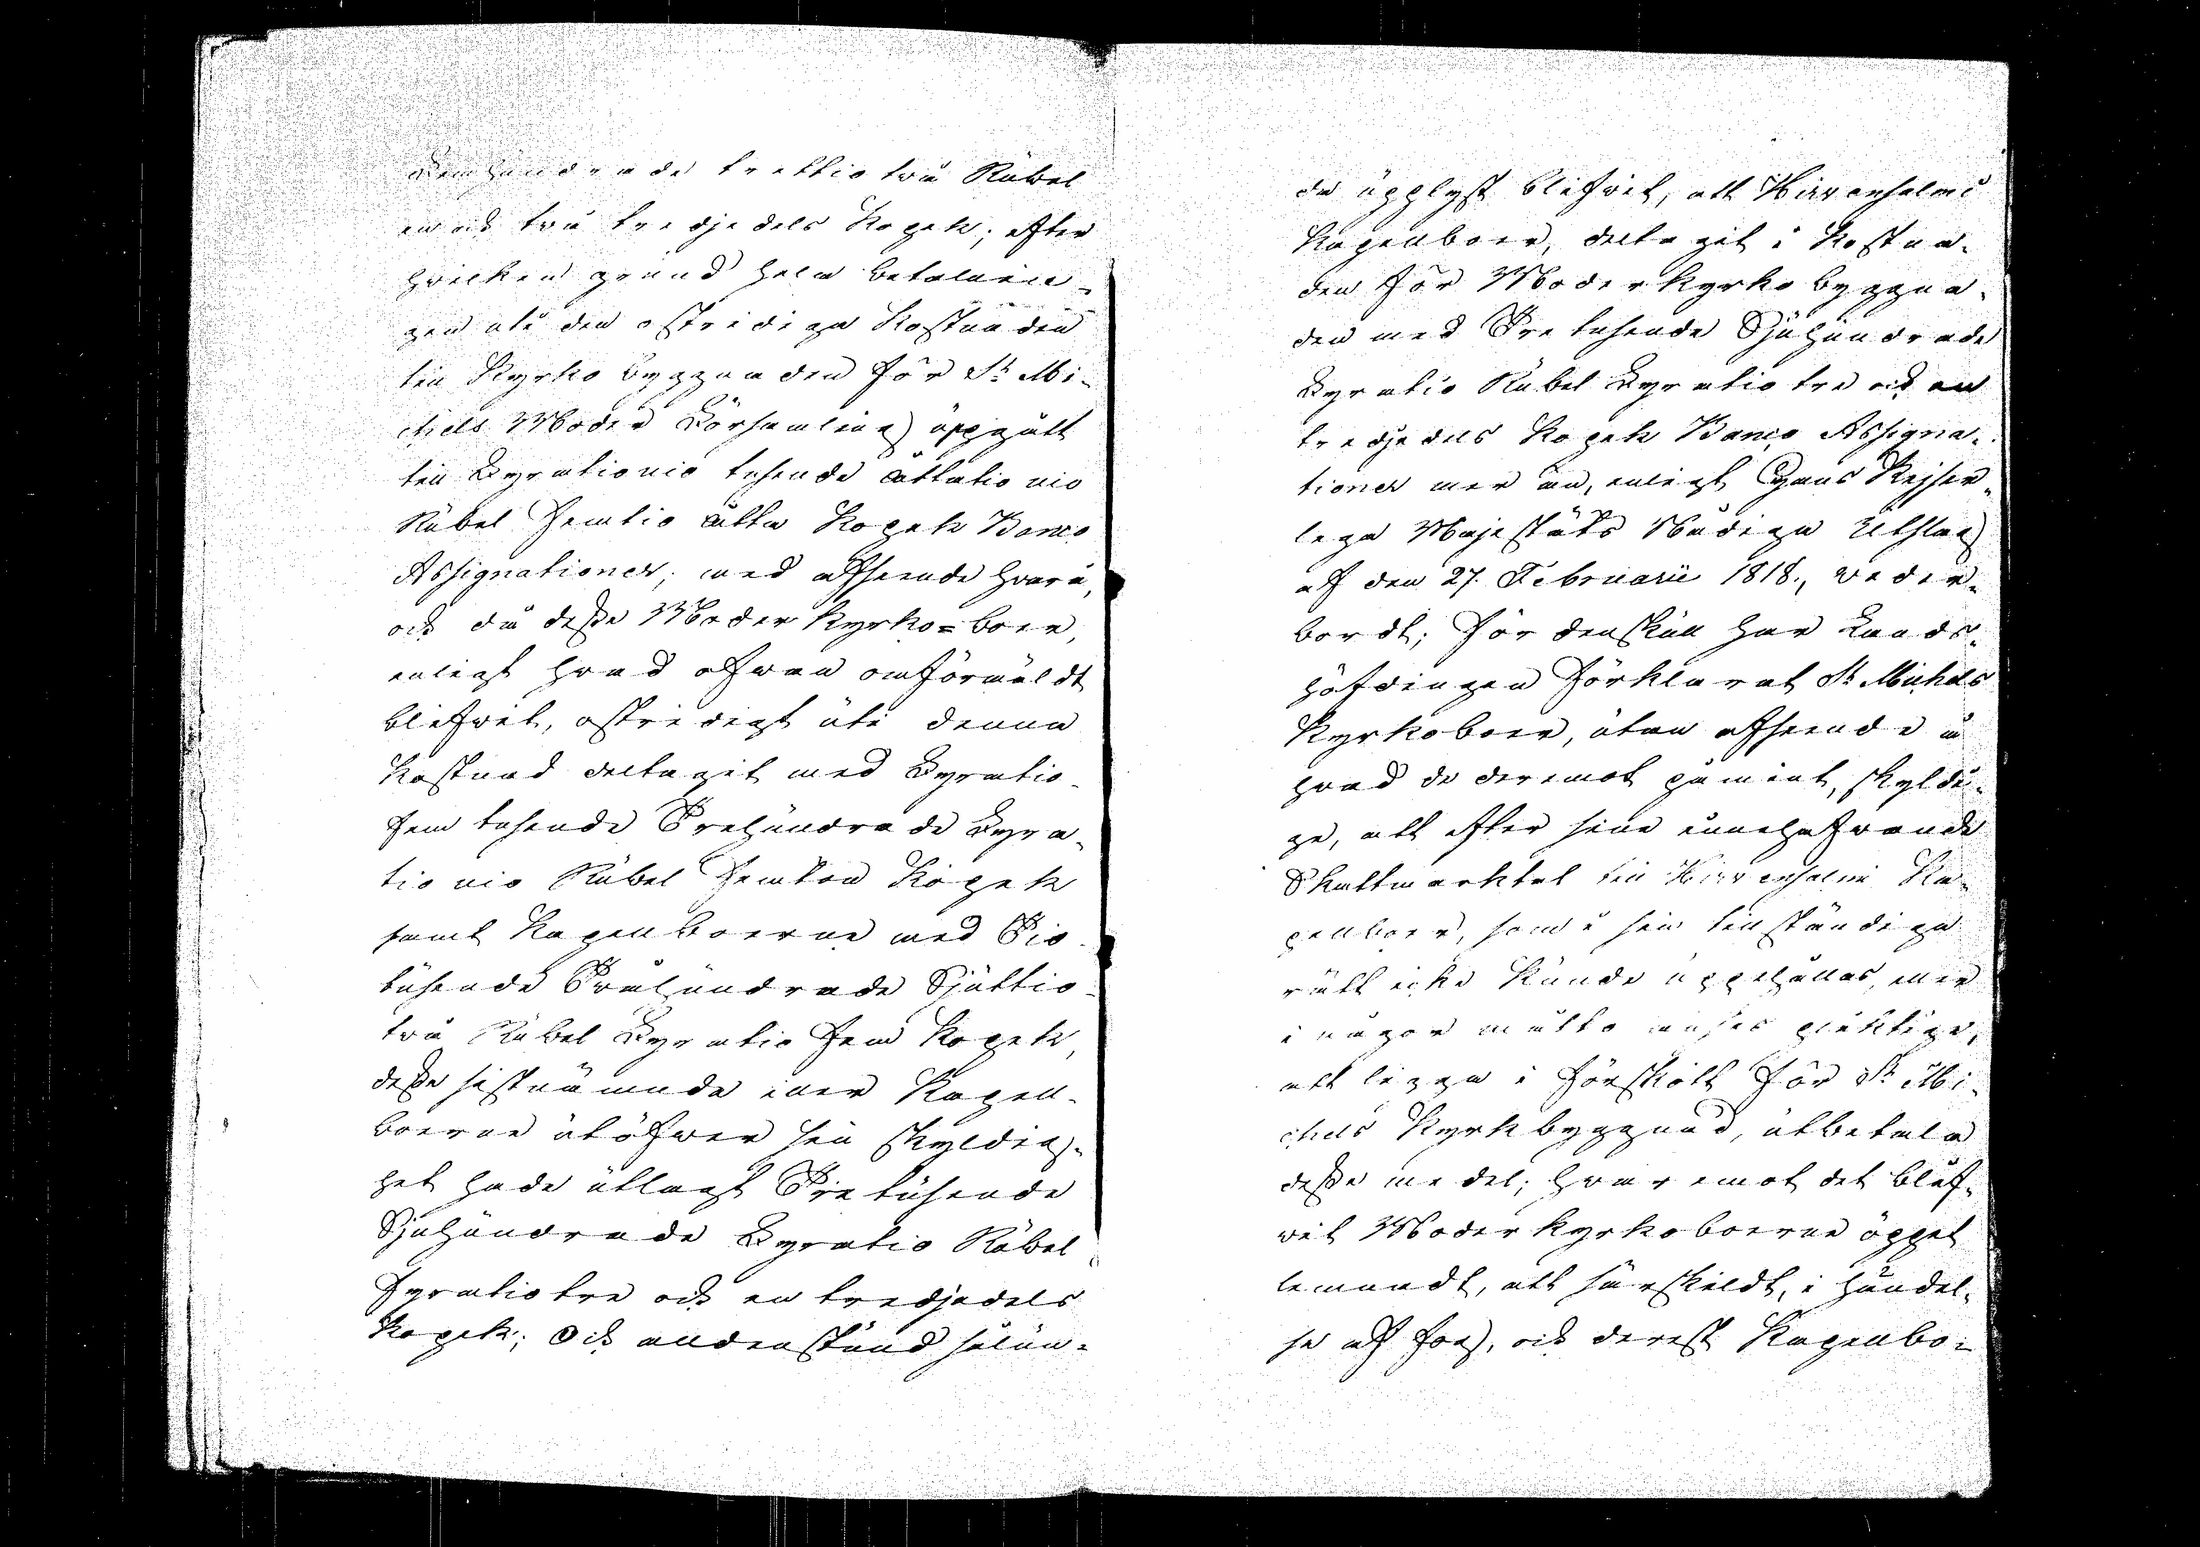 Femhundrade trettiotvå Rubel
en och två tredjedels Kopek; efter
hvilken grund hela betalnin-
gen uti den ostridiga Kostnaden
till Kyrkobyggnaden för St Mi-
chels Moder Församling uppgått
till Fyrationio tusende Åttationio
Rubel Femtio åtta Kopek Banco
Assignationer; med afseende hvarå,
och då desse Moderkyrko=boer,
enligt hvad ofwan omförmäldt
blifwit, ostridigt uti denna
kostnad deltagit med Fyratio-
fem tusende Trehundrade Fyra-
tionio Rubel Femton Kopek
samt Kapellboerne med Tio-
tusende Tvåhundrade Sjuttio-
två Rubel Fyratio fem Kopek,
desse sistnämnde eller Kapell-
boerne utöfwer sin skyldig-
het hade utlagt Tretusende
Sjuhundrade Fyratio Rubel
fyratiotre och en tredjedels
Kopek; Och alldenstund sålun-
da upplyst blifwit, att Hirvensalmi
Kapellboer, deltagit i Kostna-
den för Moderkyrkobyggna-
den med Tretusende Sjuhundrade
Fyratio Rubel Fyratiotre och en
tredjedels Kopek Banco Assigna-
tioner mer än, enligt Hans Kejser-
lega Majestäts Nådiga Utslag
af den 27. Februarii 1818., veder-
bordt; för denskull har Lands-
höfdingen förklarat St Michels
Kyrkoboer, utan afseende å
hvad de deremot påmint, skyldi-
ge, att efter sine innehafvande
Skattmarktal till Hirvensalmi Ka-
pellboer, som i sin tillständiga
rätt icke kunde uppehållas, eller
i någor måtto anses pliktige,
att ligga i förskott för St Mi-
chels Kyrkbyggnad, utbetala
desse medel; hvaremot det blif-
vit Moderkyrkoboerne öppet
lemnadt, att särskildt, i händel-
se af fog, och derest Kapellbo-